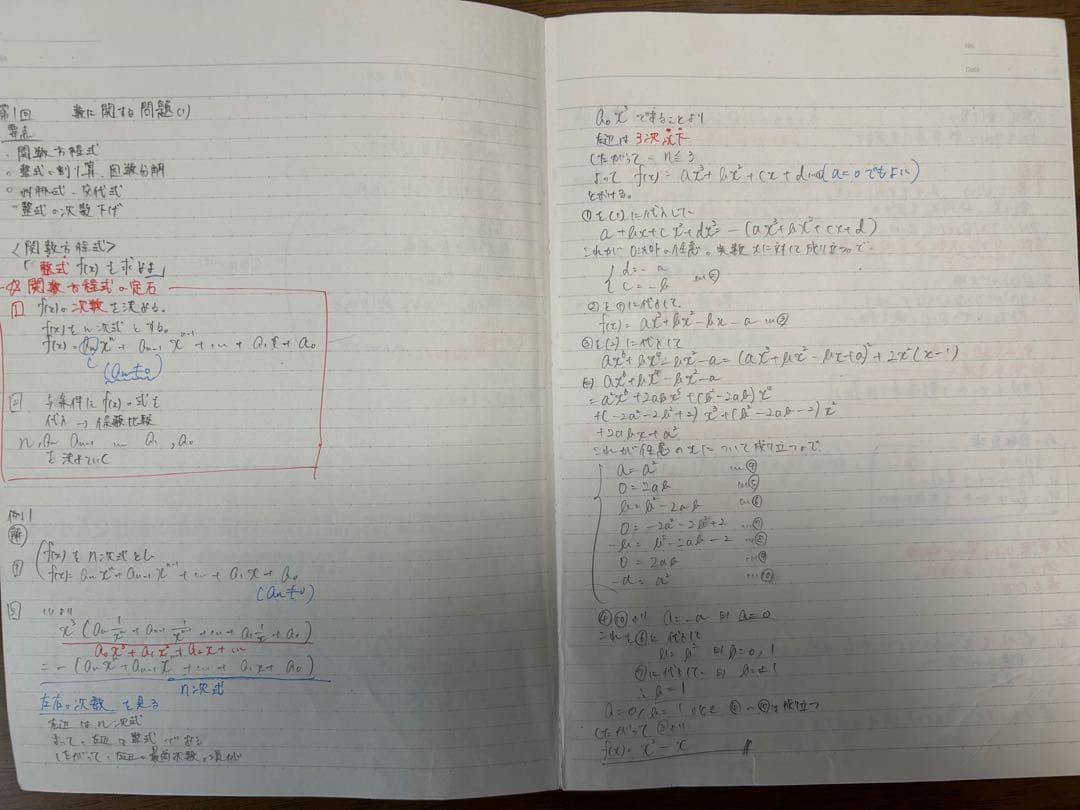 第1回 数に関する問題(1)
要点
・関数方程式
○整式の割り算、因数分解
○対称式・交代式
○整式の次数下げ
<関数方程式>
「整式 f(x) を求めよ」
☆関数方程式の定石
1 f(x)の次数を決める。
f(x)をn次式とする。
f(x)=aₙxⁿ+aₙ₋₁xⁿ⁻¹+…+a₁x+a₀
(aₙ≠0)
2 与条件にf(x)の式を
代入→係数比較
n, aₙ, aₙ₋₁ … a₁, a₀
を決めていく
例1
解
1 f(x)をn次式とし
f(x)=aₙxⁿ+aₙ₋₁xⁿ⁻¹+…+a₁x+a₀
(aₙ≠0)
2 (1)より
x³(aₙ1/xⁿ+aₙ₋₁1/xⁿ⁻¹+…+a₁1/x+a₀)
a₀x³+a₁x²+a₂x+…
=-(aₙxⁿ+aₙ₋₁xⁿ⁻¹+…+a₁x+a₀)
n次式
左右の次数を見る
右辺はn次式
よって、左辺も整式である
したがって、左辺の最高次数の項が
No.
Date
a₀x³であることより
左辺は3次以下
したがって n≦3
よって f(x)=ax³+bx²+cx+d …①(a=0でもよい)
とかける。
①を(1)に代入して
a+bx+cx²+dx³=-(ax³+bx²+cx+d)
これが0以外の任意の実数xに対して成り立つので
{d=-a
{c=-b …②
②を①に代入して
f(x)=ax³+bx²-bx-a …③
③を(2)に代入して
ax⁶+bx⁴-bx²-a=(ax³+bx²-bx+a)²+2x²(x-1)
⇔ax⁶+bx⁴-bx²-a
=a²x⁶+2abx⁵+(b²-2ab)x⁴
+(-2a²-2b²+2)x³+(b²-2ab-2)x²
+2abx+a²
これが任意のxについて成り立つので
a=a² …④
0=2ab …⑤
b=b²-2ab …⑥
0=-2a²-2b²+2 …⑦
-b=b²-2ab-2 …⑧
0=2ab …⑨
-a=a² …⑩
④⑩より a=-a ⇔ a=0
これを⑥に代入して
b=b² ⇔ b=0,1
⑦に代入して ⇔ b=±1
∴b=1
a=0, b=1のとき ④~⑩は成り立つ
したがって③より
f(x)=x²-x